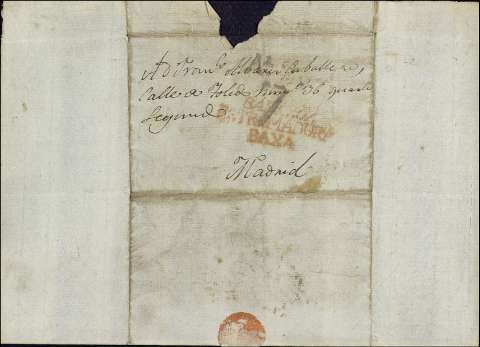 A D.n Fran.co Alvarez Caballero,
Calle de Toledo Num.o 36 quarto
Segundo
ESTREMADURA
BAXA
Madrid